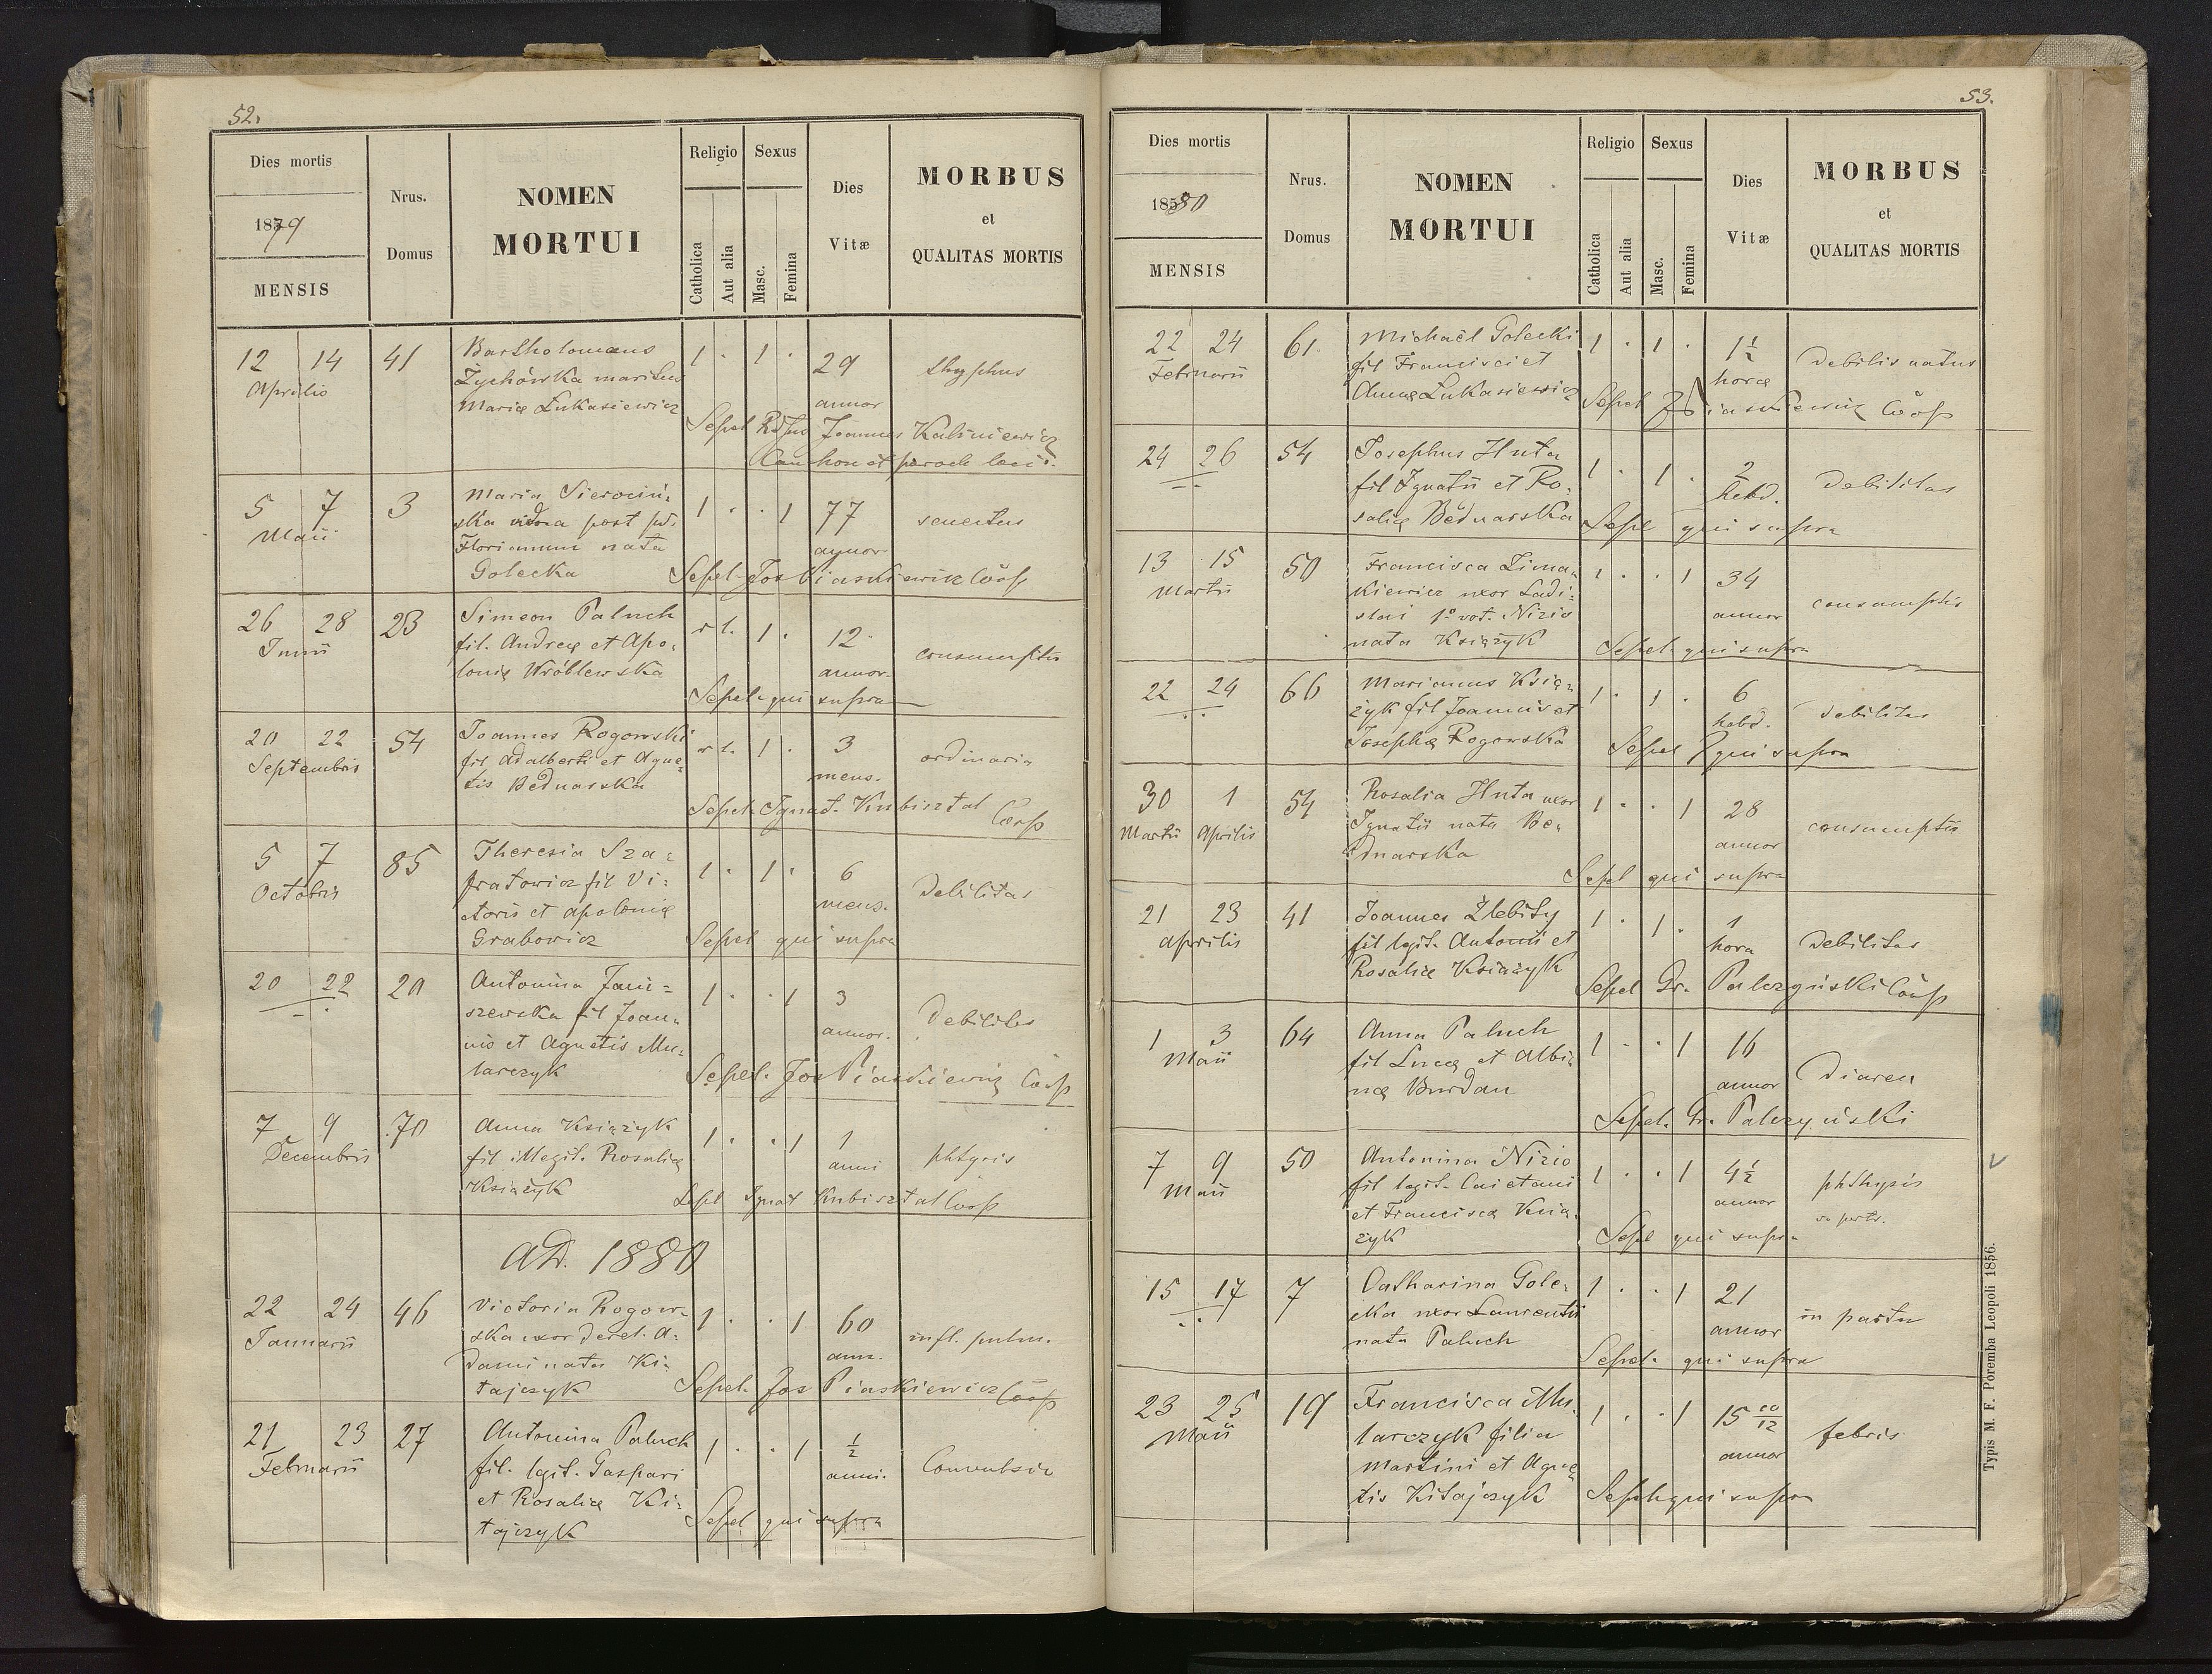 52.
Dies mortis
1879
MENSIS
Nrus.
Domus
NOMEN
MORTUI
Religio
Catholica
Aut alia
Sexus
Masc.
Femina
Dies
Vitæ
MORBUS
et
QUALITAS MORTIS
12 14 41 Bartholomaeus 1 . 1 . 29 thyphus
Aprilis Zychówska maritus
Mariæ Łukasiewicz annor
Sepel Joannes Kaliniewicz
Can hon et paroch loci.
5 7 3 Maria Sierociń= 1 . . 1 77 senectus
Maii ska vidua post
Florianum nata annor.
Golecka Sepel Jos Piaskiewicz Coop
26 28 23 Simeon Paluch r l. 1 . 12 consumptis
Junii fil. Andreæ et Apo=
loniæ Wróblewska annor.
Sepel. qui supra
20 22 54 Joannes Rogowski r l. 1 . 3 ordinaria
Septembris fil Adalberti et Agne=
tis Bednarska mens.
Sepel. Ignat. Kubisztal Coop
5 7 85 Theresia Sza= 1 . 1 . 6 Debilitas
Octobris fratowicz fil Vi=
ctoris et Apoloniæ mens.
Grabowicz Sepel qui supra
20 22 20 Antonina Jani= 1 . . 1 3 Debilitas
szewska fil Joan=
nis et Agnetis Mu= annor.
larczyk Sepel. Jos Piaskiewicz Coop
7 9 70 Anna Książyk 1 . . 1 1 phtysis
Decembris fil illegit. Rosaliæ anni
Książyk Sepel Ignat Kubisztal Coop
AD. 1880
22 24 46 Victoria Rogow= 1 . . 1 60 infl. pulm.
Januarii ska uxor derel. A=
dami nata Ki= ann.
tajczyk Sepel. Jos Piaskiewicz Coop
21 23 27 Antonina Paluch 1 . . 1 1/2 Convulsio
Februarii fil. legit. Gaspari anni.
et Rosaliæ Ki=
tajczyk Sepel qui supra
53.
Dies mortis
1880
MENSIS
Nrus.
Domus
NOMEN
MORTUI
Religio
Catholica
Aut alia
Sexus
Masc.
Femina
Dies
Vitæ
MORBUS
et
QUALITAS MORTIS
22 24 61. Michaël Golecki 1 . 1 . 1 1/2 Debilis natus
Februarii fil Francisci et horæ
Annæ Łukasiewicz Sepel J Piaskiewicz Coop
24 26 54 Josephus Huta 1 . 1 . 2 Debilitas
fil Ignatii et Ro= hebd.
saliæ Bednarska Sepel qui supra
13 15 50 Francisca Zima= 1 . . 1 34 consumptis
Martii kiewicz uxor Ladi=
slai 1o vot. Nizio annor
nata Książyk Sepel qui supra
22 24 66 Marianus Ksią= 1 . 1 . 6 Debilitas
żyk fil Joannis et hebd.
Josephæ Rogowska Sepel qui supra
30 1 54 Rosalia Huta uxor 1 . . 1 28 consumptis
Martii Aprilis Ignatii nata Be=
dnarska annor
Sepel qui supra
21 23 41 Joannes Zlebity 1 . 1 . 1 Debilitas
Aprilis fil legit. Antonii et hora
Rosaliæ Książyk Sepel Gr. Palczyński Coop
1 3 64 Anna Paluch 1 . . 1 16 Diarea
Maii fil Lucæ et Albi=
næ Burdan annor
Sepel. Gr. Palczyński
7 9 50 Antonina Nizio 1 . . 1 4 1/2 phthysis
Maii fil legit. Caietani annor
et Franciscæ Ksią=
żyk Sepel qui supra
15 17 7 Catharina Gole= 1 . . 1 21 in partu
cka uxor Laurentii
nata Paluch annor
Sepel. qui supra
23 25 19 Francisca Mu= 1 . . 1 15 10/12 febris
Maii larczyk filia
Martini et Agne= annor
tis Kitajczyk Sepel qui supra
Typis M. F. Poremba Leopoli 1856.